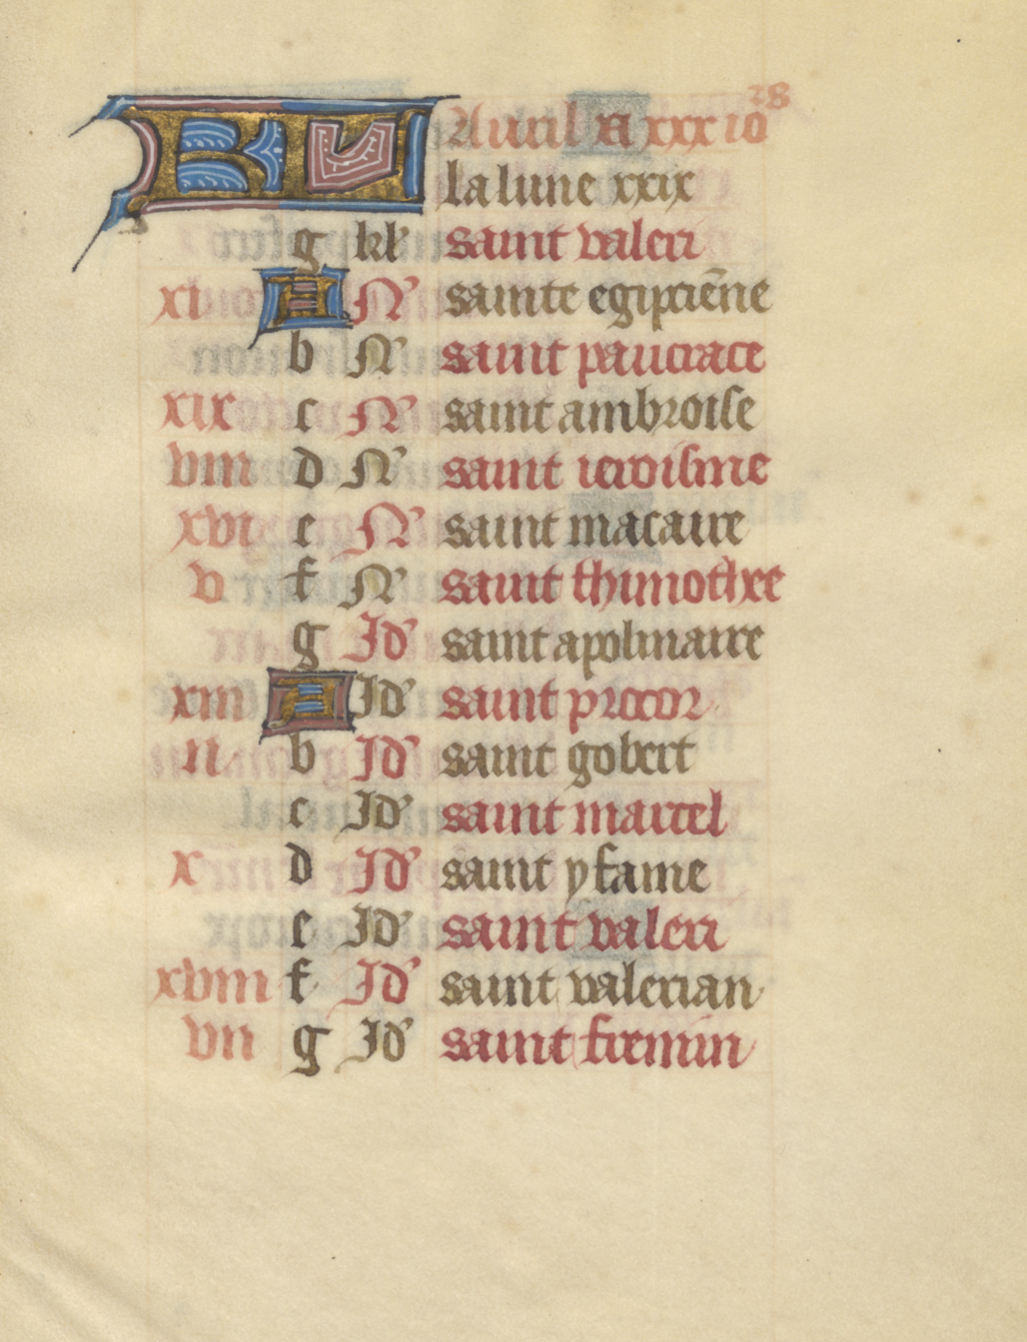 KL Auril A xxx io^rs
la lune xxix
g kł saint valeri
xi A N' sainte egipciēne
b N' saint pancrace
xix c N' saint ambroise
viii d N' saint ieroisme
xvi e N' saint macaire
v f N' saint thimothee
g Id' saint apolinaire
xiii A Id' saint procor
ii b Id' saint gobert
c Id' saint marcel
x d Id' saint yfame
e Id' saint valeri
xviii f Id' saint valerian
vii g Id' saint firmin